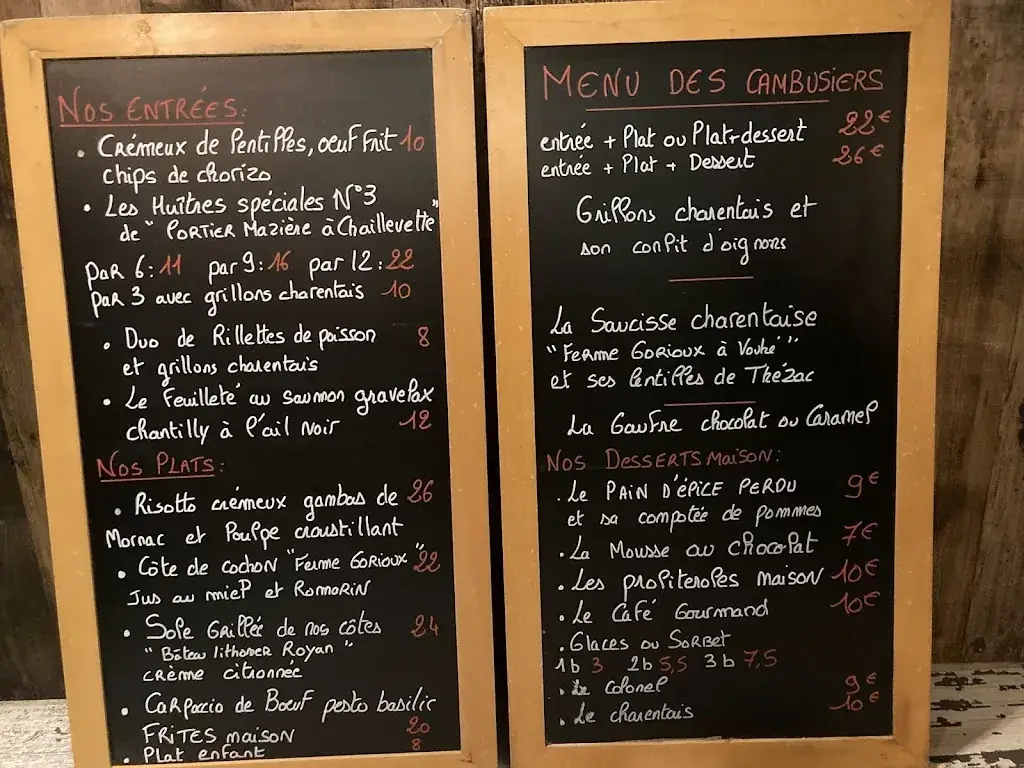 NOS ENTRÉES:
• Crémeux de lentilles, oeuf frit 10
chips de chorizo
• Les Huîtres spéciales N°3
de "PORTIER Mazière à Chaillevette"
par 6: 11 par 9: 16 par 12: 22
par 3 avec grillons charentais 10
• Duo de Rillettes de poisson 8
et grillons charentais
• Le Feuilleté au saumon gravelax
chantilly à l'ail noir 12
NOS PLATS:
• Risotto crémeux gambas de 26
Mornac et Poulpe croustillant
• Côte de cochon "Ferme GORIOUX" 22
Jus au miel et Romarin
• Sole Grillée de nos côtes 24
"Bâteau lithoner Royan"
crème citronnée
• Carpaccio de Boeuf pesto basilic
FRITES maison 20
• Plat enfant 8
MENU DES CAMBUSIERS
entrée + Plat ou Plat+dessert 22€
entrée + Plat + Dessert 26€
Grillons charentais et
son confit d'oignons
La Saucisse charentaise
"Ferme GORIOUX à Vouhé"
et ses lentilles de Thézac
La Gaufre chocolat ou Caramel
NOS DESSERTS MAISON:
• Le PAIN D'ÉPICE PERDU 9€
et sa compotée de pommes
• La Mousse au chocolat 7€
• Les profiteroles maison 10€
• Le Café Gourmand 10€
• Glaces ou Sorbet
1b 3 2b 5,5 3b 7,5
• Le Colonel 9€
• Le charentais 10€